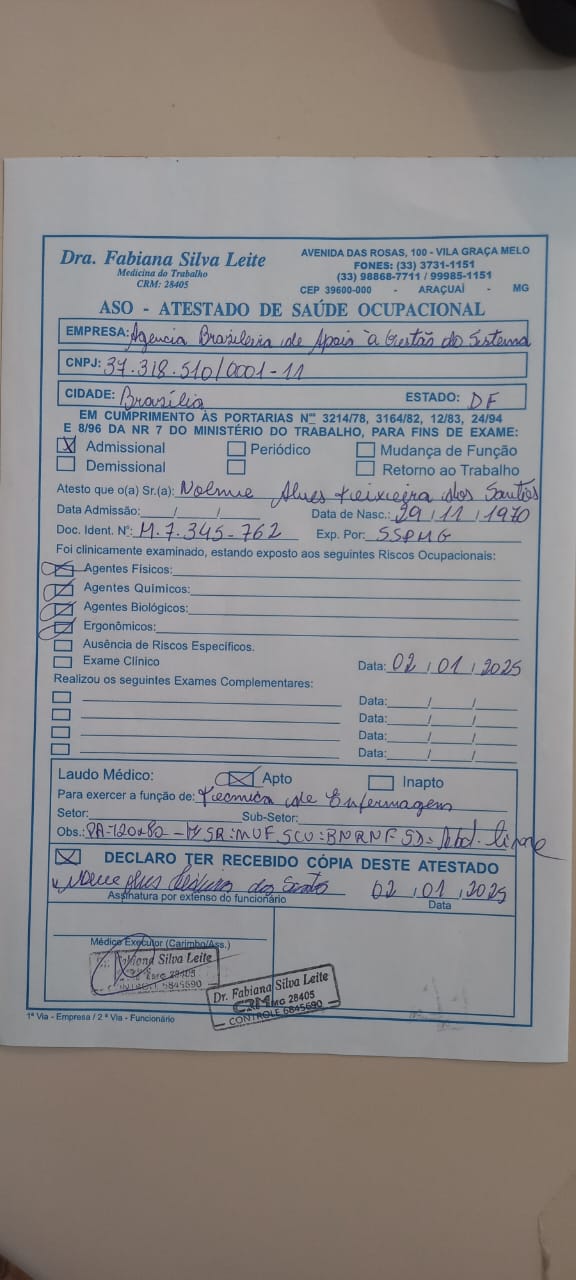 Dra. Fabiana Silva Leite
Medicina do Trabalho
CRM: 28405
AVENIDA DAS ROSAS, 100 - VILA GRAÇA MELO
FONES: (33) 3731-1151
(33) 98868-7711 / 99985-1151
CEP 39600-000 - ARAÇUAÍ - MG
ASO - ATESTADO DE SAÚDE OCUPACIONAL
EMPRESA: Agencia Brasileira de Apoio à Gestão do Sistema
CNPJ: 37.318.510/0001-11
CIDADE: Brasília ESTADO: DF
EM CUMPRIMENTO ÀS PORTARIAS Nºs 3214/78, 3164/82, 12/83, 24/94
E 8/96 DA NR 7 DO MINISTÉRIO DO TRABALHO, PARA FINS DE EXAME:
X Admissional Periódico Mudança de Função
Demissional Retorno ao Trabalho
Atesto que o(a) Sr.(a): Alves dos Santos
Data Admissão: / / Data de Nasc.: 29/11/1970
Doc. Ident. Nº: M.7.345-762 Exp. Por: SSPMG
Foi clinicamente examinado, estando exposto aos seguintes Riscos Ocupacionais:
X Agentes Físicos:
X Agentes Químicos:
X Agentes Biológicos:
X Ergonômicos:
Ausência de Riscos Específicos.
Exame Clínico Data: 02/01/2025
Realizou os seguintes Exames Complementares:
Data: / /
Data: / /
Data: / /
Data: / /
Laudo Médico: X Apto Inapto
Para exercer a função de: Tecnica de Enfermagem
Setor: Sub-Setor:
Obs.: PA=120x80 - SR:MUF SCU:BNRNF
X DECLARO TER RECEBIDO CÓPIA DESTE ATESTADO
02/01/2025
Assinatura por extenso do funcionário Data
Médico Executor (Carimbo/Ass.)
Fabiana Silva Leite
28405
CONTROLE 6845690
Dr. Fabiana Silva Leite
CRM MG 28405
CONTROLE 6845690
1ª Via - Empresa / 2ª Via - Funcionário